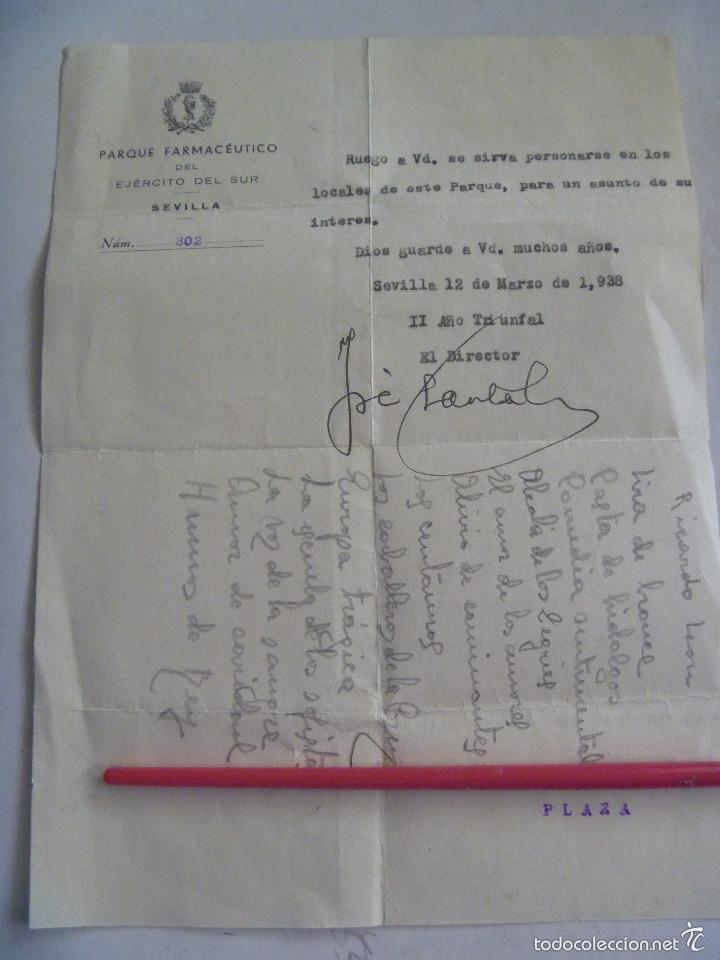 PARQUE FARMACÉUTICO
DEL
EJÉRCITO DEL SUR
SEVILLA
Núm. 302
Ruego a Vd. se sirva personarse en los
locales de este Parque, para un asunto de su
interes.
Dios guarde a Vd. muchos años.
Sevilla 12 de Marzo de 1,938
II Año Triunfal
El Director
Ricardo Leon
Lira de bronce
Casta de hidalgos
Comedia sentimental
Alcalá de los Zegries
El amor de los amores
Alivio de caminantes
Los centauros
Los caballeros de la Cruz
Europa trágica
La escuela de los sofistas
La voz de la sangre
Amor de caridad
Humos de Rey
PLAZA
todocoleccion.net